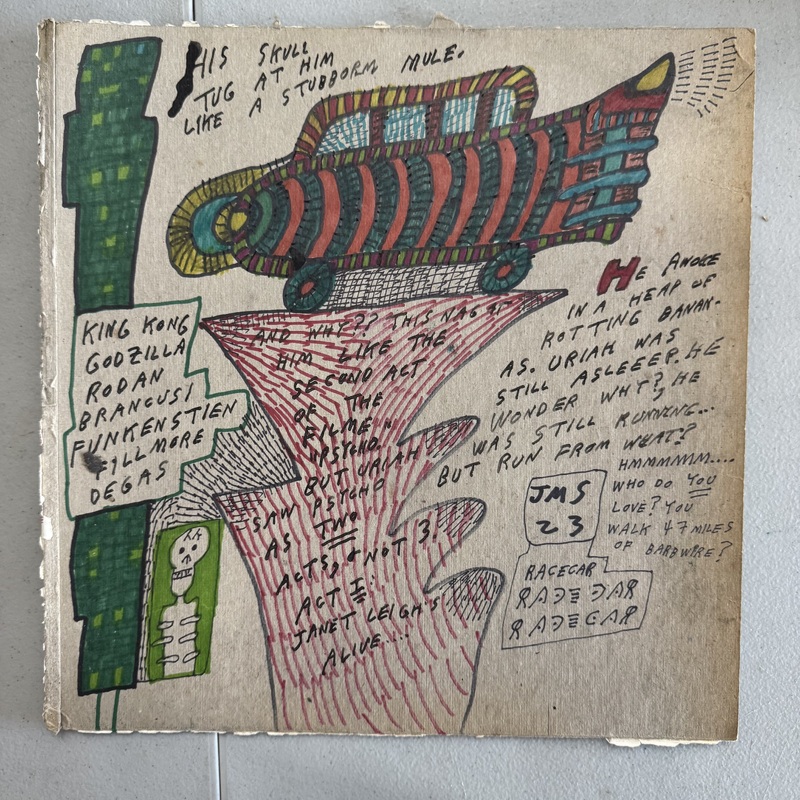 HIS SKULL
TUG AT HIM
LIKE A STUBBORM MULE.
KING KONG
GODZILLA
RODAN
BRANCUSI
FUNKENSTIEN
FILLMORE
DEGAS
AND WHY?? THIS NAG AT
HIM LIKE THE
SECOND ACT
OF THE
FILME
"PSYCHO.
BUT URIAH
SAW PSYCHO
AS TWO
ACTS, NOT 3!
ACT I:
JANET LEIGH'S
ALIVE....
HE AWOKE
IN A HEAP OF
ROTTING BANAN-
AS. URIAH WAS
STILL ASLEEEP. HE
WONDER WHY? HE
WAS STILL RUNNING...
BUT RUN FROM WHAT?
HMMMMMM....
WHO DO YOU
LOVE? YOU
WALK 47 MILES
OF BARBWIRE?
JMS
23
RACECAR